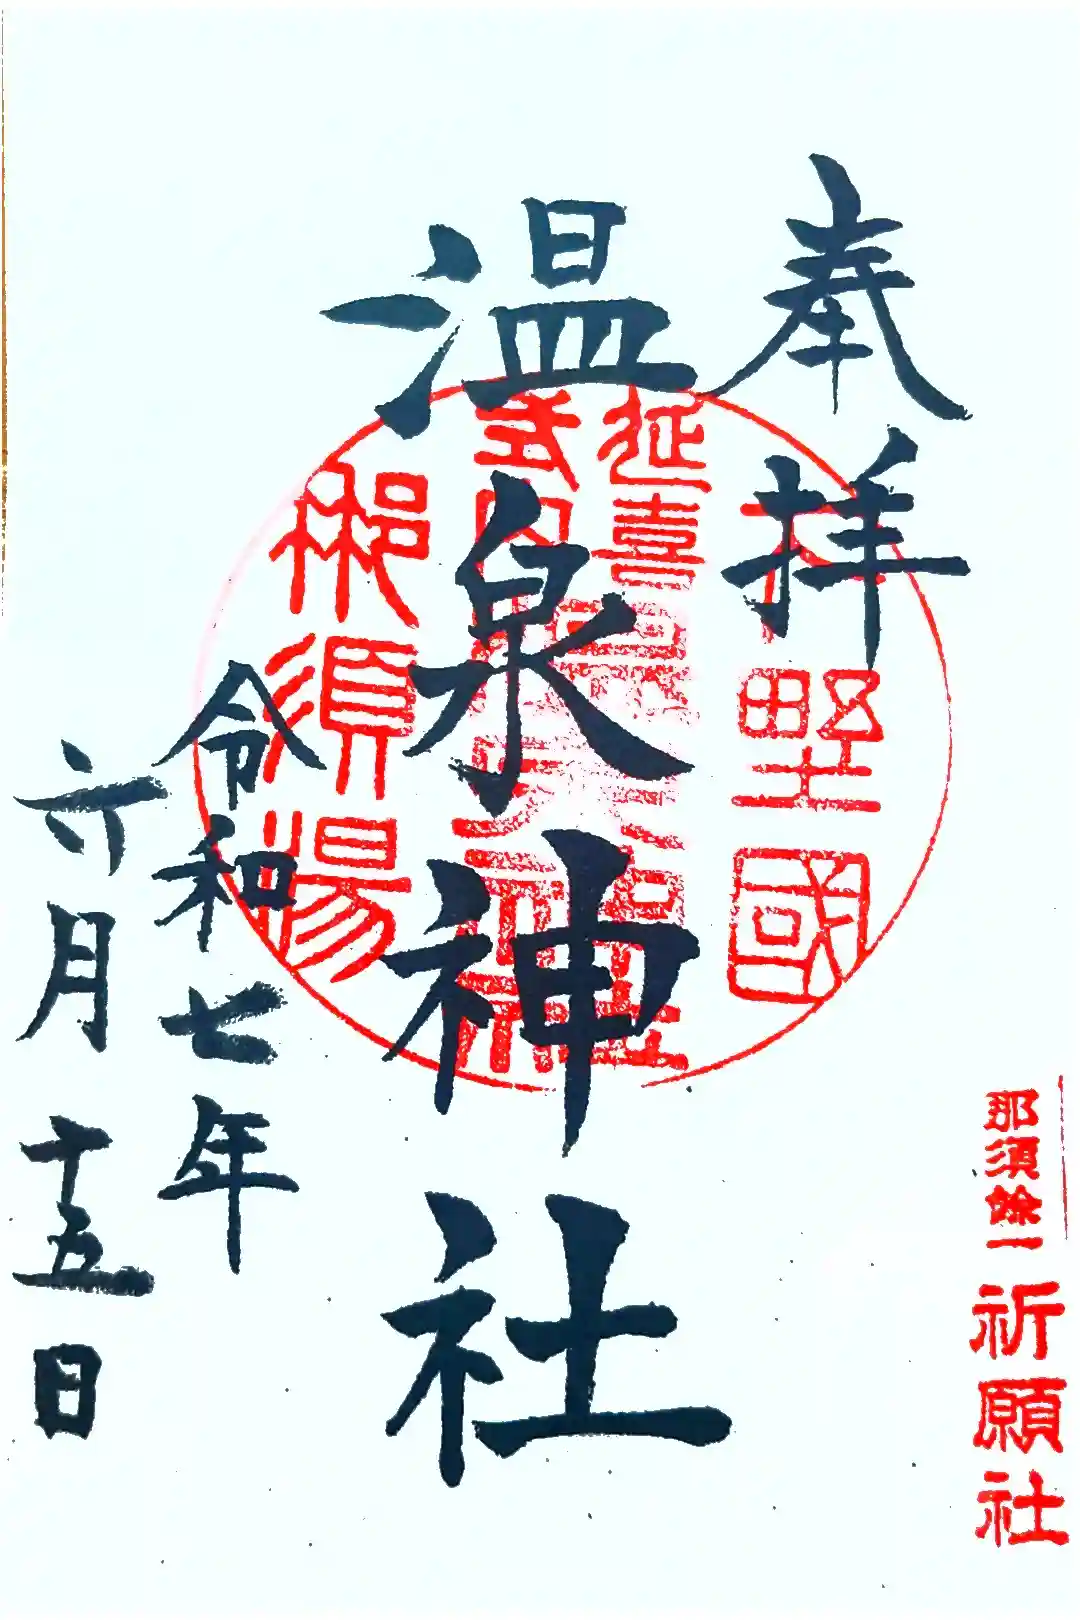 奉拝
温泉神社
令和七年
六月十五日
野國
延喜
式内
那須湯
那須餘一
祈願社